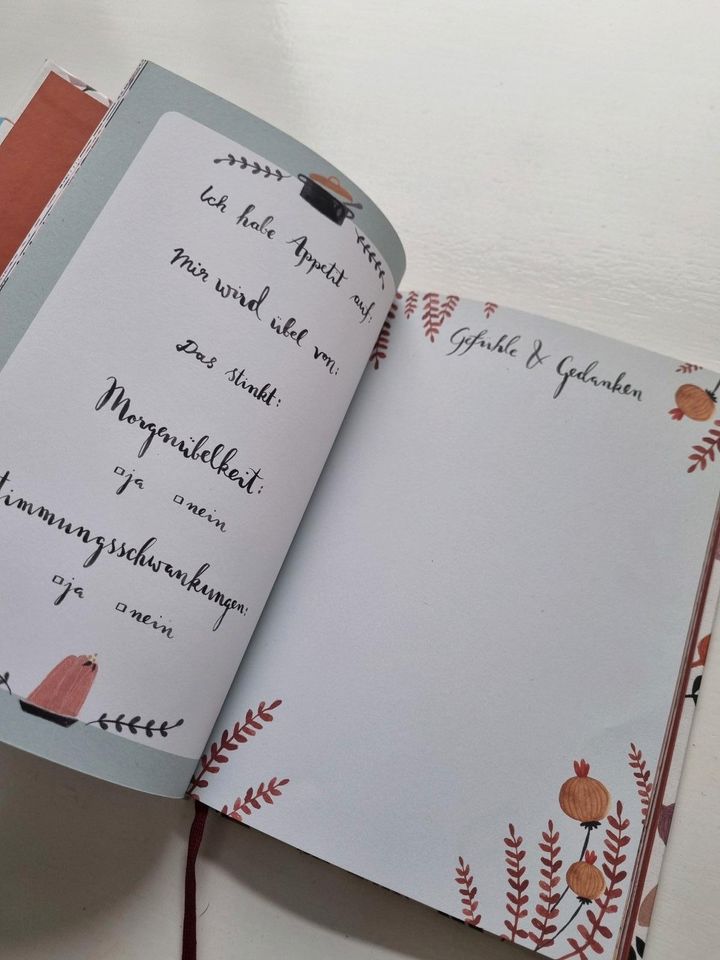 Ich habe Appetit auf:
Mir wird übel von:
Das stinkt:
Morgenübelkeit:
ja nein
timmungsschwankungen:
ja nein
Gefühle & Gedanken